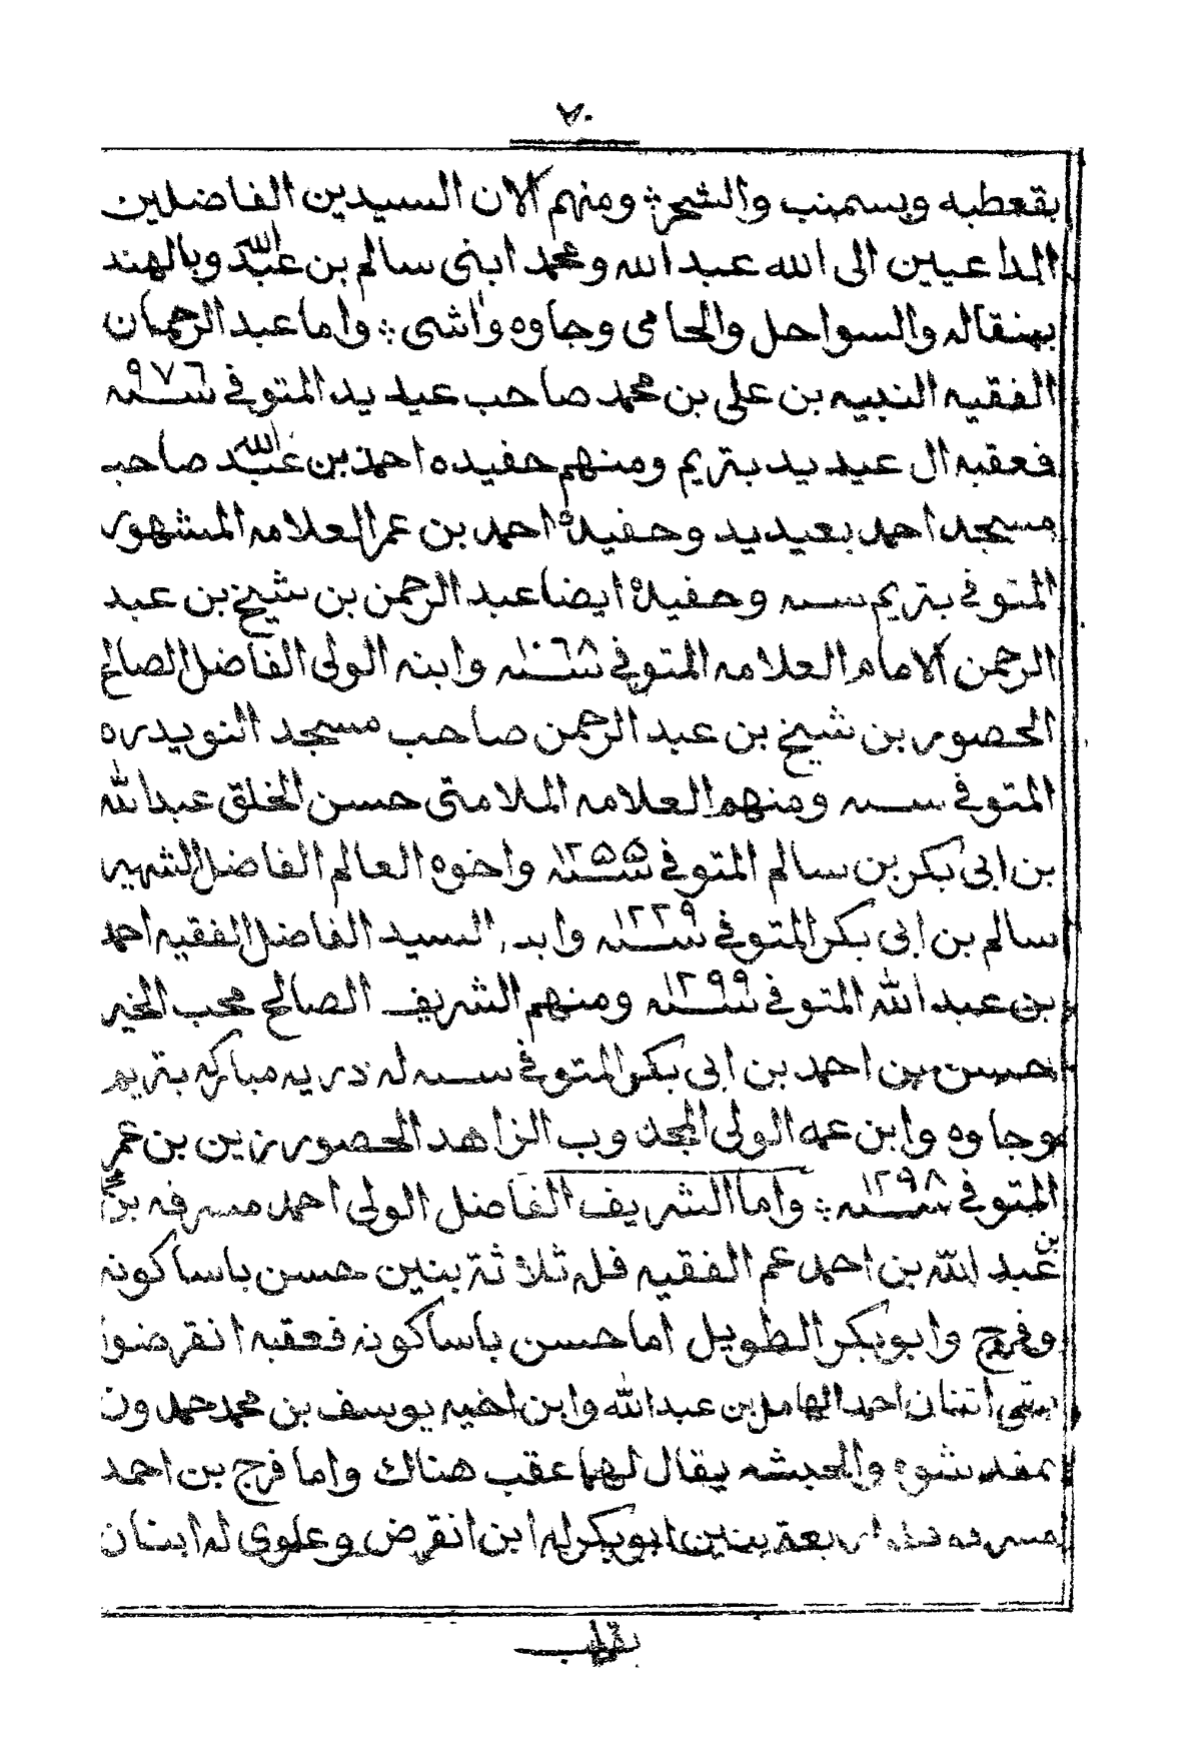 ٧٠
بقعطبه ويسمنب والشحر ومنهم الان السيدين الفاضلين
الداعيين الى الله عبد الله ومحمد ابنى سالم بن عبد الله وبالهند
بهنقاله والسواحل والحامى وجاوه واشى واما عبد الرحمان
الفقيه النبيه بن على بن محمد صاحب عيديد المتوفى سنه ٩٧٦
فعقبه ال عيديد بتريم ومنهم حفيده احمد بن عبد الله صاحب
مسجد احمد بعيديد وحفيده احمد بن عمر العلامه المشهور
المتوفى بتريم سنه وحفيده ايضا عبد الرحمن بن شيخ بن عبد
الرحمن الامام العلامه المتوفى سنه ١٠٦٨ وابنه الولى الفاضل الصالح
الحصور بن شيخ بن عبد الرحمن صاحب مسجد النويدره
المتوفى سنه ومنهم العلامه الملامتى حسن الخلق عبد الله
بن ابى بكر بن سالم المتوفى سنه ١٢٥٥ واخوه العالم الفاضل الشهير
سالم بن ابى بكر المتوفى سنه ١٢٢٩ السيد الفاضل الفقيه احمد
بن عبد الله المتوفى سنه ١٢٩٩ ومنهم الشريف الصالح محب الخير
حسن بن احمد بن ابى بكر المتوفى سنه له ذريه مباركه بتريم
وجاوه وابن عمه الولى المجذوب الزاهد الحصور زين بن عمر
المتوفى سنه ١٢٩٨ واما الشريف الفاضل الولى احمد مسرفه بن محمد
بن عبد الله بن احمد عم الفقيه فله ثلاثة بنين حسن باساكوته
وفرج وابو بكر الطويل اما حسن باساكوته فعقبه انقرضوا
بقى اثنان احمد الهامل بن عبد الله وابن اخيه يوسف بن محمد حمدون
بمقدشوه والحبشه يقال لهما عقب هناك واما فرج بن احمد
مسرفه فله اربعة بنين ابو بكر له ابن انقرض وعلوى له ابنان